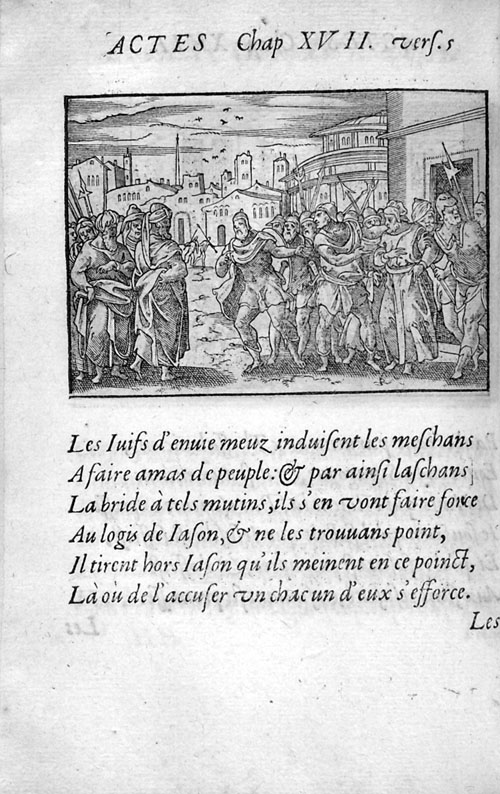 ACTES Chap XVII. vers. 5
Les Iuifs d'enuie meuz induisent les meschans
A faire amas de peuple: & par ainsi laschans
La bride à tels mutins, ils s'en vont faire force
Au logis de Iason, & ne les trouuans point,
Il tirent hors Iason qu'ils meinent en ce poinct,
Là où de l'accuser vn chacun d'eux s'efforce.
Les